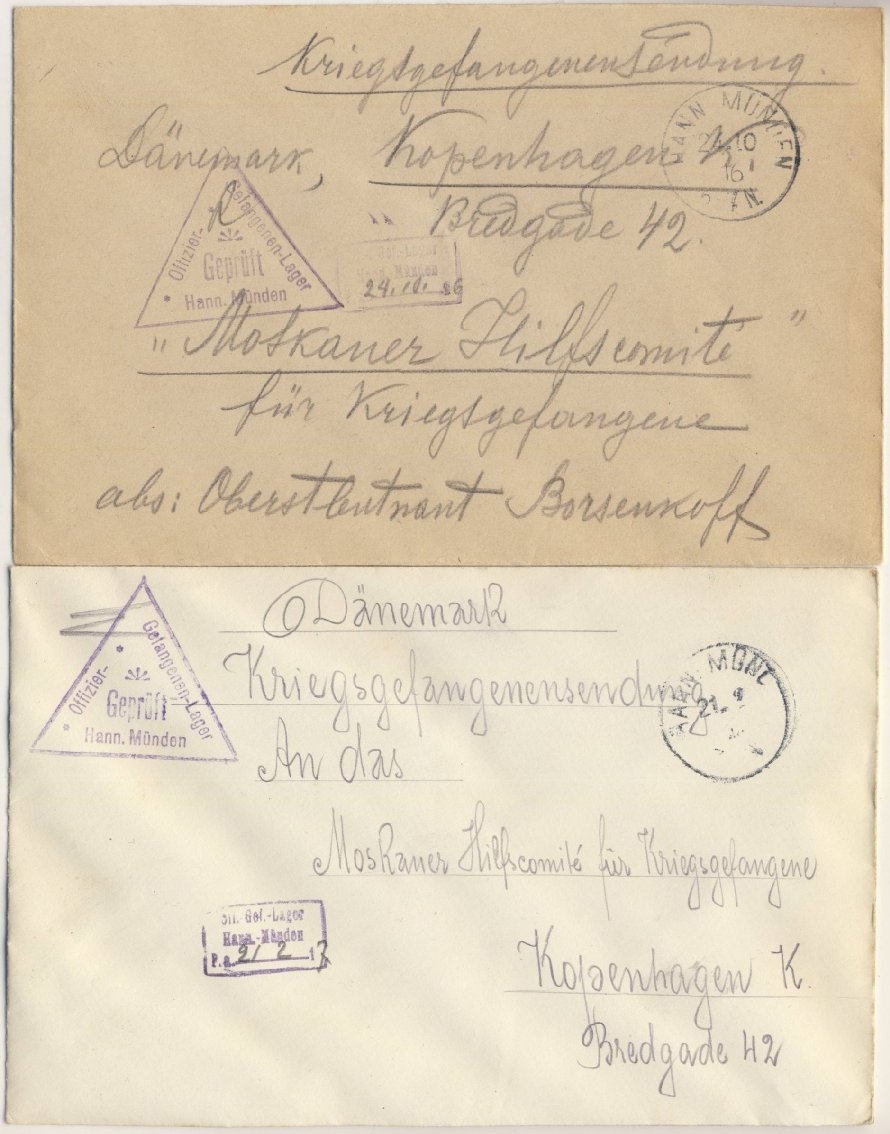 Kriegsgefangenensendung.
Dänemark, Kopenhagen K
Bredgade 42.
HANN MÜNDEN
24.10
16
N.
Offizier-Gefangenen-Lager
Geprüft
Hann. Münden
Gef.-Lager
Hann. Münden
24. 10. 16
"Moskauer Hilfscomité"
für Kriegsgefangene
abs: Oberstleutnant Borsenkoff
Dänemark
Kriegsgefangenensendung
An das
Moskauer Hilfscomité für Kriegsgefangene
Kopenhagen K.
Bredgade 42
Offizier-Gefangenen-Lager
Geprüft
Hann. Münden
HANN MÜND
21.
Off.-Gef.-Lager
Hann.-Münden
P.a. 21 2 17